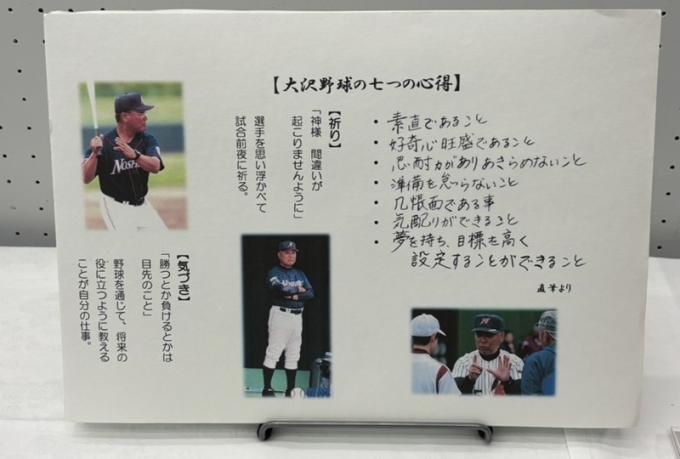 【大沢野球の七つの心得】
・素直であること
・好奇心旺盛であること
・忍耐力がありあきらめないこと
・準備を怠らないこと
・几帳面である事
・気配りができること
・夢を持ち、目標を高く
設定することができること
直筆より
【祈り】
「神様 間違いが
起こりませんように」
選手を思い浮かべて
試合前夜に祈る。
【気づき】
「勝つとか負けるとかは
目先のこと」
野球を通じて、将来の
役に立つように教える
ことが自分の仕事。